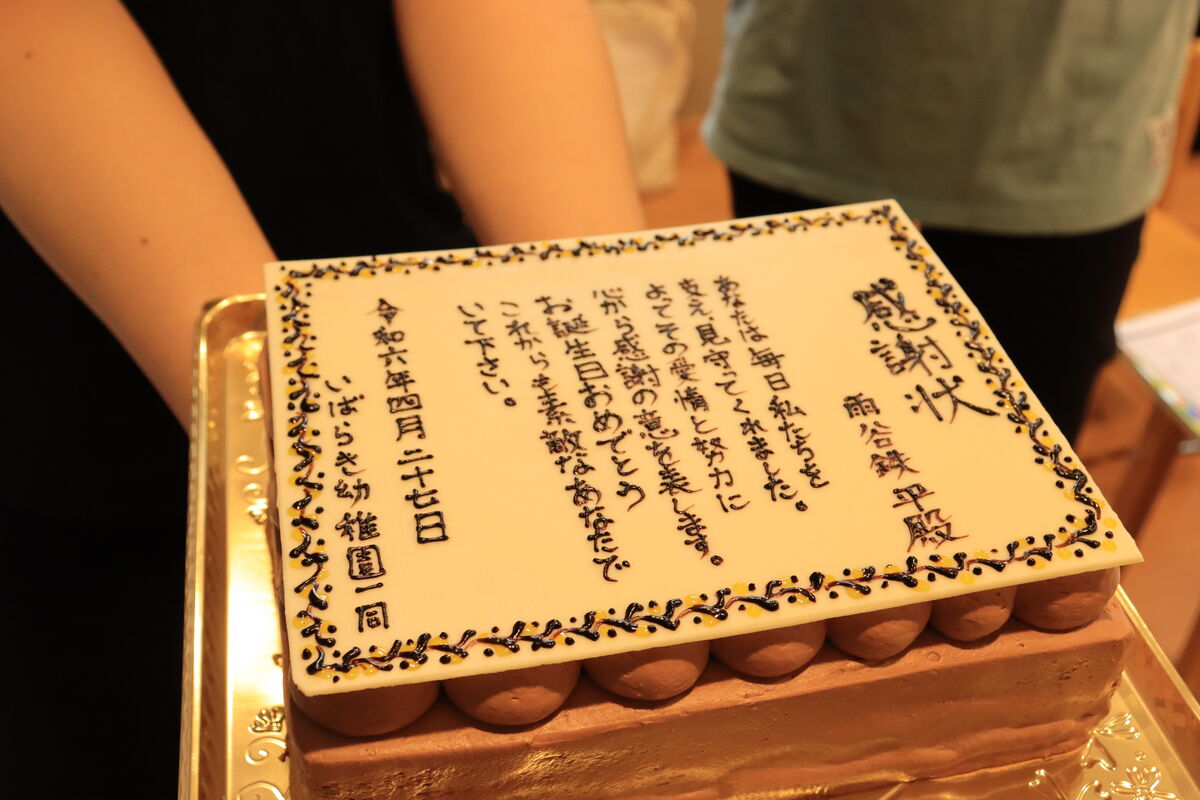 感謝状
雨谷鉄平殿
あなたは毎日私たちを
支え、見守ってくれました。
よってその愛情と努力に
心から感謝の意を表します。
お誕生日おめでとう
これからも素敵なあなたで
いて下さい。
令和六年四月二十七日
いばらき幼稚園一同